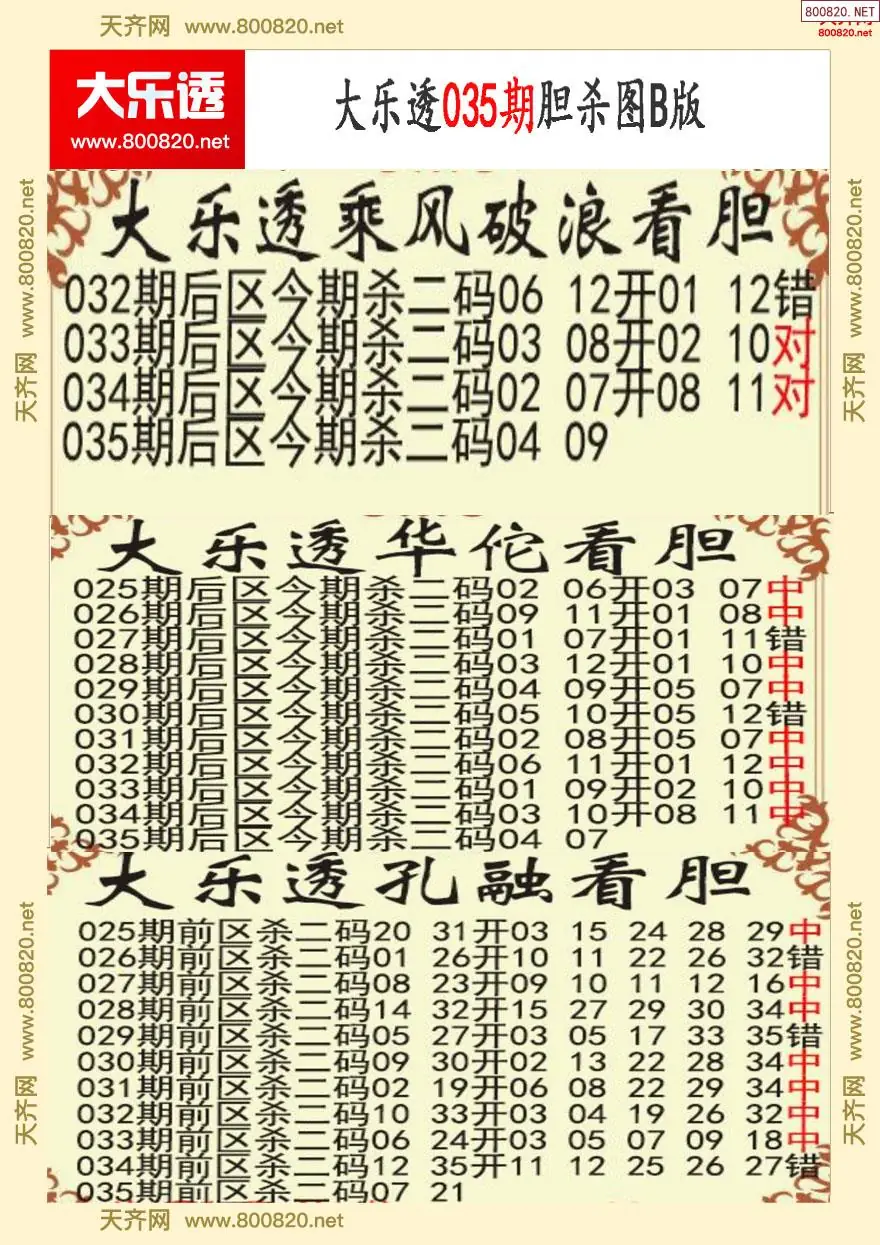 天齐网 www.800820.net
800820.NET
800820.net
大乐透
www.800820.net
大乐透035期胆杀图B版
大乐透乘风破浪看胆
032期后区今期杀二码06 12开01 12错
033期后区今期杀二码03 08开02 10对
034期后区今期杀二码02 07开08 11对
035期后区今期杀二码04 09
大乐透华佗看胆
025期后区今期杀二码02 06开03 07中
026期后区今期杀二码09 11开01 08中
027期后区今期杀二码01 07开01 11错
028期后区今期杀二码03 12开01 10中
029期后区今期杀二码04 09开05 07中
030期后区今期杀二码05 10开05 12错
031期后区今期杀二码02 08开05 07中
032期后区今期杀二码06 11开01 12中
033期后区今期杀二码01 09开02 10中
034期后区今期杀二码03 10开08 11中
035期后区今期杀二码04 07
大乐透孔融看胆
025期前区杀二码20 31开03 15 24 28 29中
026期前区杀二码01 26开10 11 22 26 32错
027期前区杀二码08 23开09 10 11 12 16中
028期前区杀二码14 32开15 27 29 30 34中
029期前区杀二码05 27开03 05 17 33 35错
030期前区杀二码09 30开02 13 22 28 34中
031期前区杀二码02 19开06 08 22 29 34中
032期前区杀二码10 33开03 04 19 26 32中
033期前区杀二码06 24开03 05 07 09 18中
034期前区杀二码12 35开11 12 25 26 27错
035期前区杀二码07 21
天齐网 www.800820.net
天齐网 www.800820.net
天齐网 www.800820.net
天齐网 www.800820.net
天齐网 www.800820.net